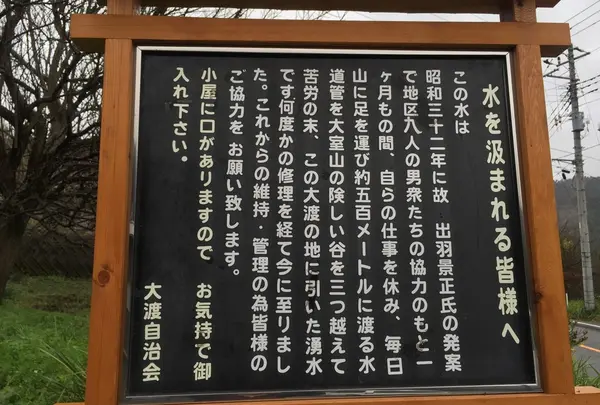 水を汲まれる皆様へ
この水は
昭和三十二年に故 出羽景正氏の発案
で地区九人の男衆たちの協力のもと一
ヶ月もの間、自らの仕事を休み、毎日
山に足を運び約五百メートルに渡る水
道管を大室山の険しい谷を三つ越えて
苦労の末、この大渡の地に引いた湧水
です何度かの修理を経て今に至りまし
た。これからの維持・管理の為皆様の
ご協力を お願い致します。
小屋に口がありますので お気持で御
入れ下さい。
大渡自治会